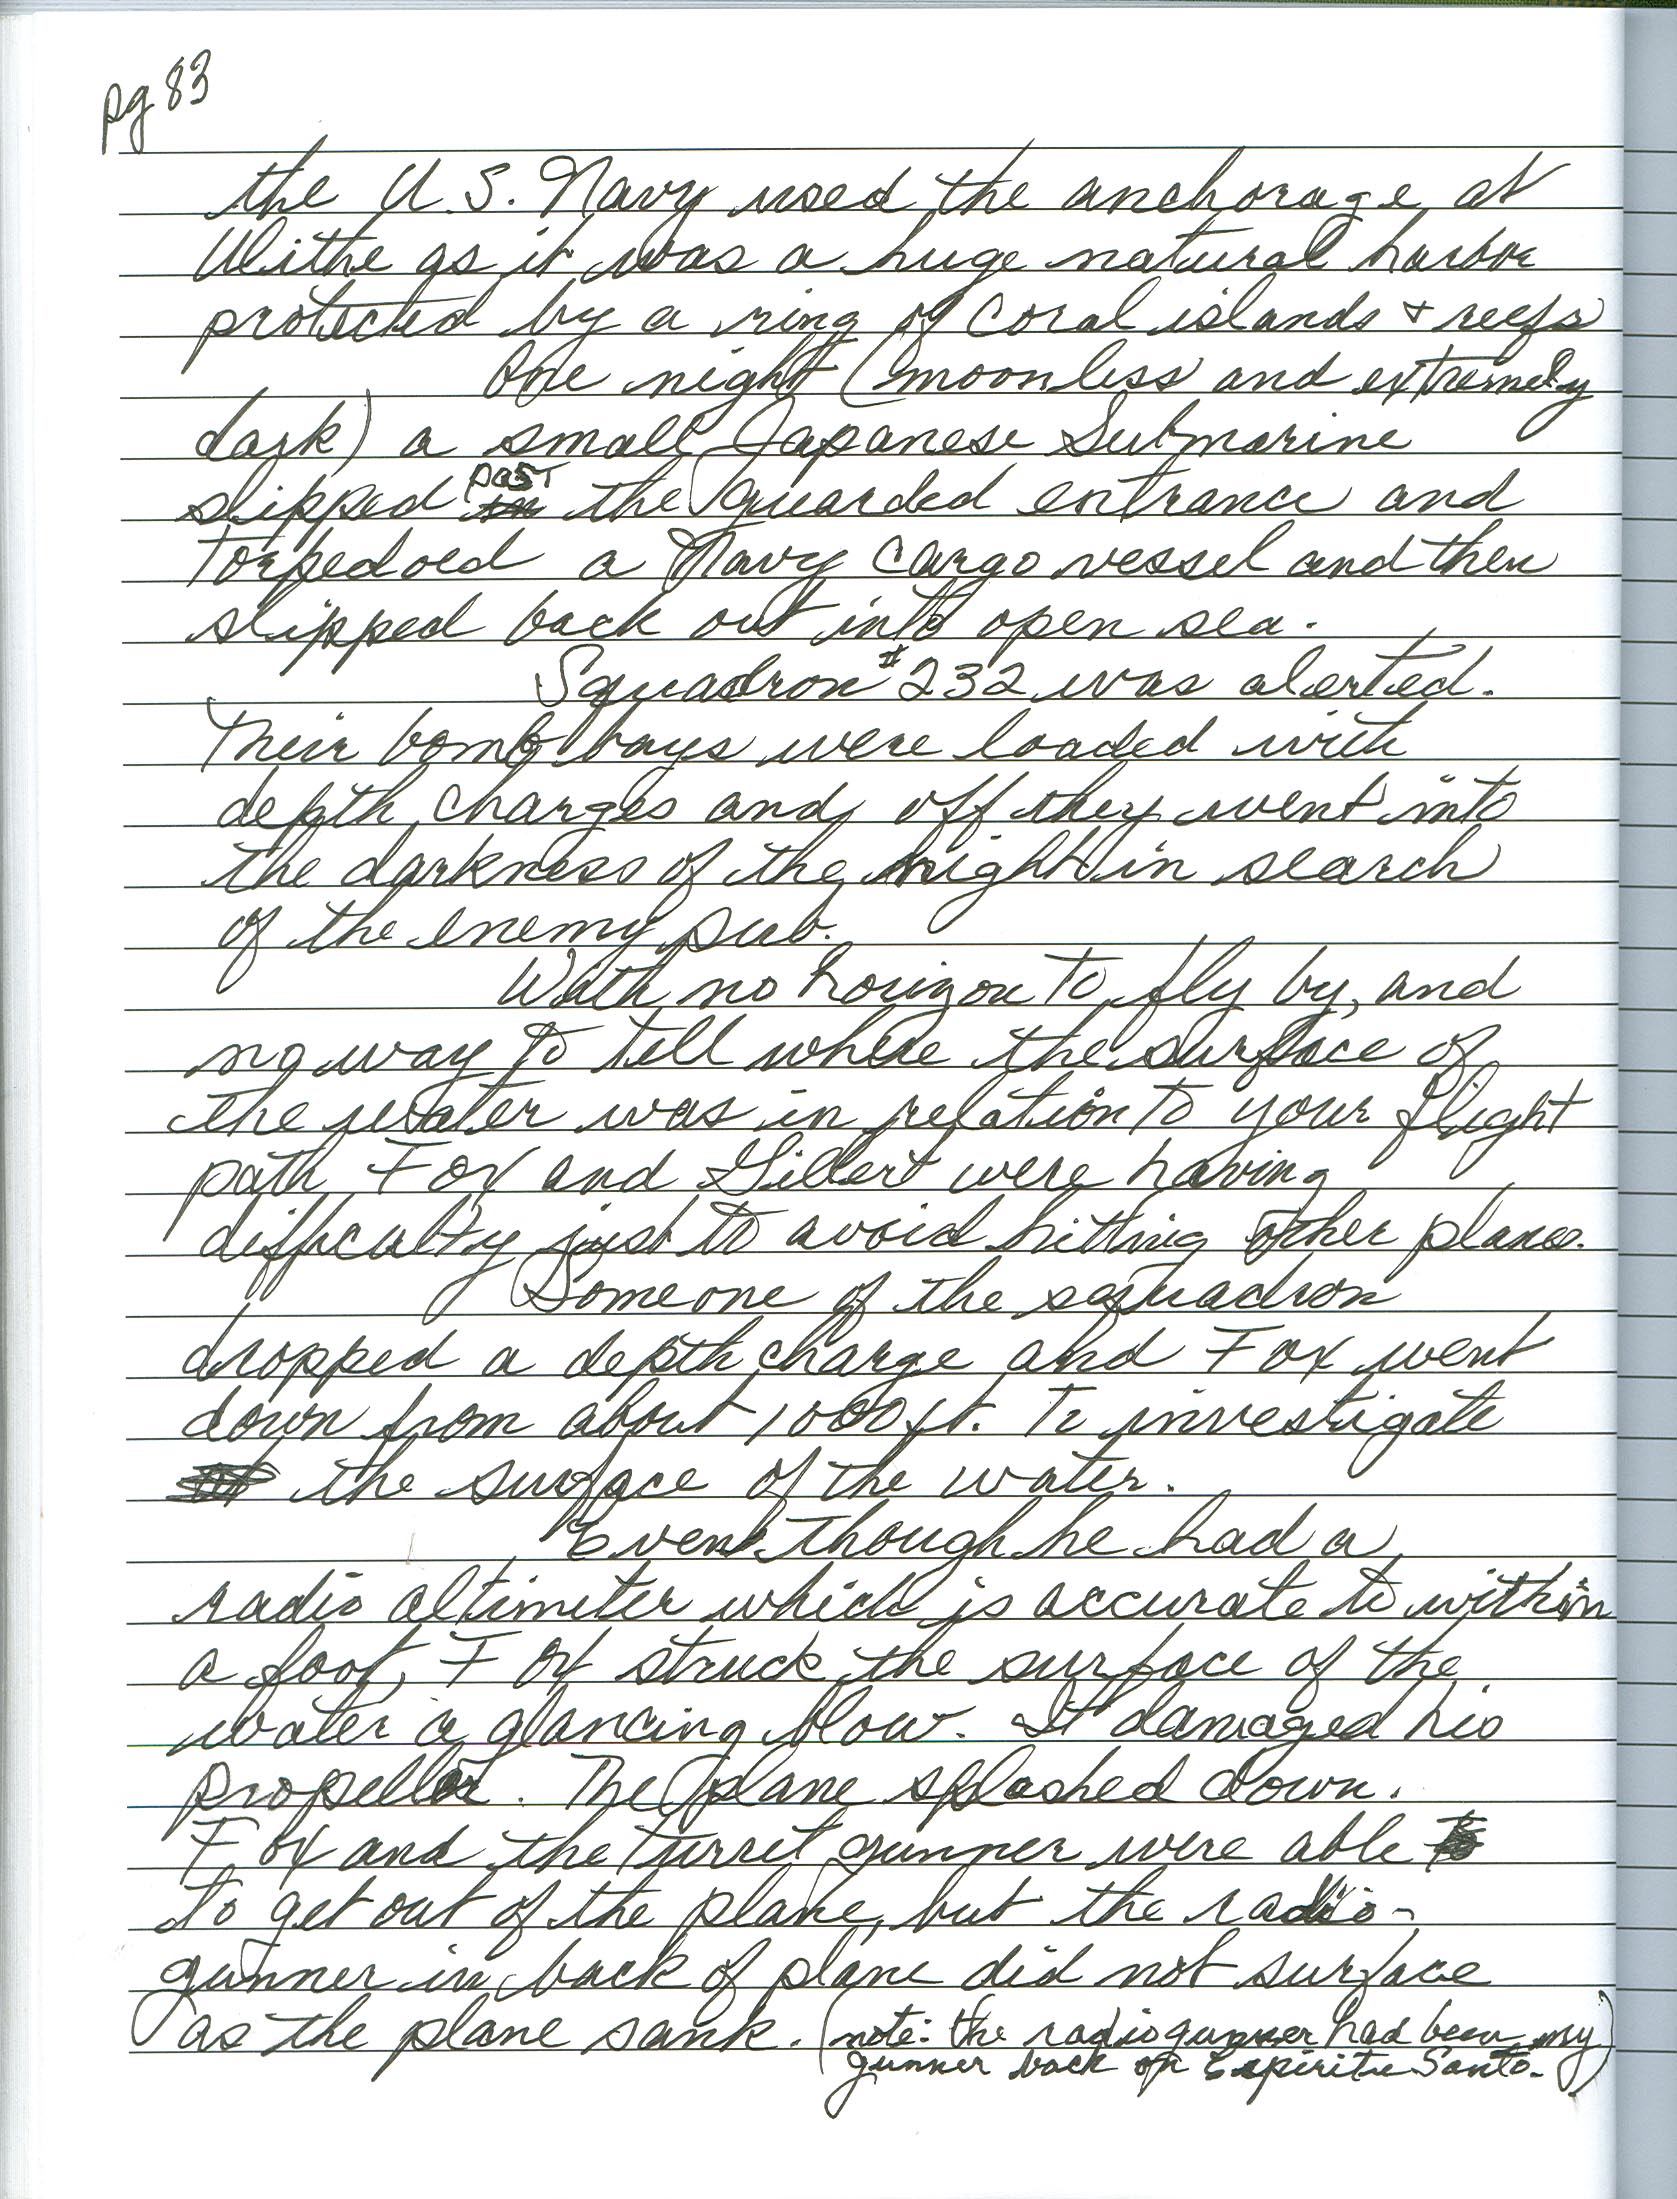 pg 83
the U.S. Navy used the anchorage at
Ulithe as it was a huge natural harbor
protected by a ring of coral islands + reefs
One night (moonless and extremely
dark) a small Japanese Submarine
slipped past the guarded entrance and
Torpedoed a Navy cargo vessel and then
slipped back out into open sea.
Squadron #232 was alerted.
Their bomb bays were loaded with
depth charges and off they went into
the darkness of the night in search
of the enemy sub.
With no horizon to fly by, and
no way to tell where the surface of
the water was in relation to your flight
path Fox and Gilbert were having
difficulty just to avoid hitting other planes.
Someone of the squadron
dropped a depth charge and Fox went
down from about 1000 ft. To investigate
the surface of the water.
Even though he had a
radio altimeter which is accurate to within
a foot, Fox struck the surface of the
water a glancing blow. It damaged his
propeller. The plane splashed down.
Fox and the turret gunner were able
to get out of the plane, but the radio-
gunner in back of plane did not surface
as the plane sank. (note: the radio gunner had been my
gunner back on Espiritu Santo.)